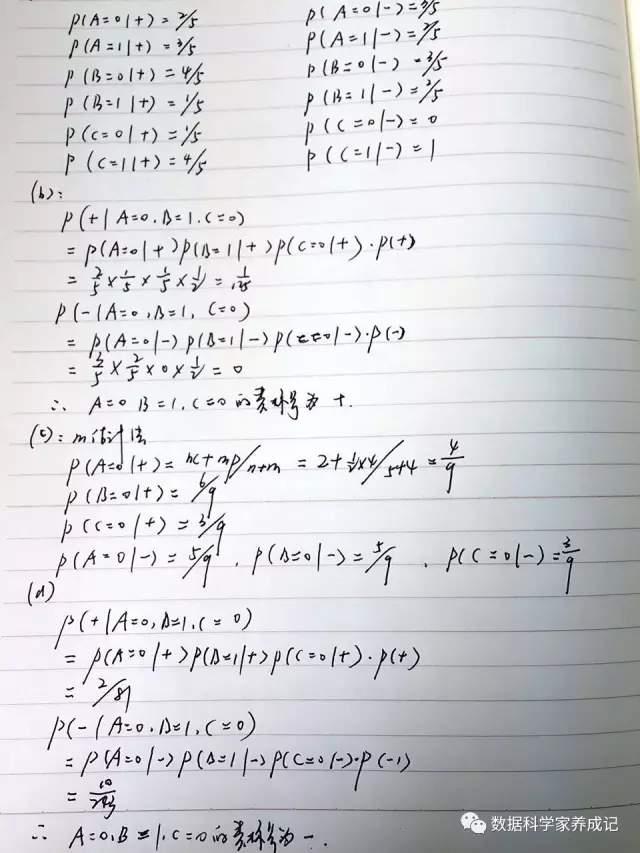 P(A=0|+)=2/5    P(A=0|-)=3/5
P(A=1|+)=3/5    P(A=1|-)=2/5
P(B=0|+)=4/5    P(B=0|-)=3/5
P(B=1|+)=1/5    P(B=1|-)=2/5
P(C=0|+)=1/5    P(C=0|-)=0
P(C=1|+)=4/5    P(C=1|-)=1
(b):
P(+|A=0,B=1,C=0)
=P(A=0|+)P(B=1|+)P(C=0|+)·P(+)
=2/5×1/5×1/5×1/2=1/125
P(-|A=0,B=1,C=0)
=P(A=0|-)P(B=1|-)P(C=0|-)·P(-)
=3/5×2/5×0×1/2=0
∴ A=0 B=1,C=0的类标号为 +.
(c):m估计法
P(A=0|+)=nc+mp/n+m=2+1/2×4/5+4=4/9
P(B=0|+)=6/9
P(C=0|+)=3/9
P(A=0|-)=5/9,P(B=0|-)=5/9,P(C=0|-)=3/9
(d)
P(+|A=0,B=1,C=0)
=P(A=0|+)P(B=1|+)P(C=0|+)·P(+)
=2/81
P(-|A=0,B=1,C=0)
=P(A=0|-)P(B=1|-)P(C=0|-)·P(-1)
=10/243
∴ A=0,B=1,C=0的类标号为 -.
数据科学家养成记